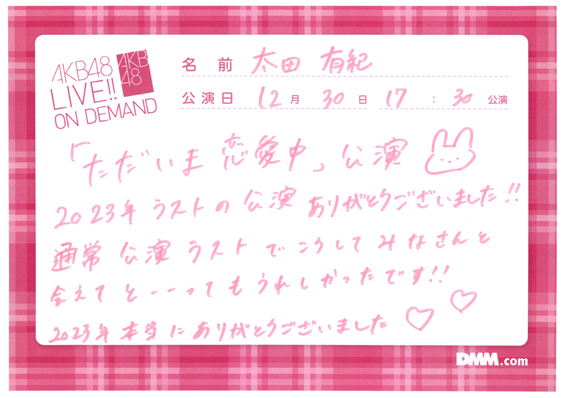 AKB48
LIVE!!
ON DEMAND
AKB
48
名 前 太田 有紀
公演日 12 月 30 日 17 : 30 公演
「ただいま 恋愛中」公演
2023年 ラストの 公演 ありがとうございました!!
通常 公演 ラスト で こうして みなさんと
会えて と--っても うれしかったです!!
2023年 本当に ありがとうございました ♡ ♡
DMM.com